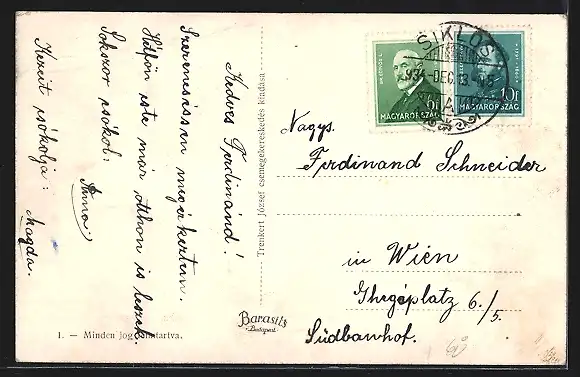 Kedves Ferdinánd!
Szerencsésen megérkeztem.
Hétfőn este már otthon is leszek.
Sokszor csókol:
Anna
Kezeit csókolja:
Magda.
Trenkert József csemegekereskedés kiadása
Barasits
Budapest
1. — Minden jog fenntartva.
SIKLÓS
934 DEC 13
6f
MAGYARORSZÁG
10f
MAGYARORSZÁG
Nagys.
Ferdinand Schneider
in Wien
Ghegaplatz 6./5.
Südbanhof.